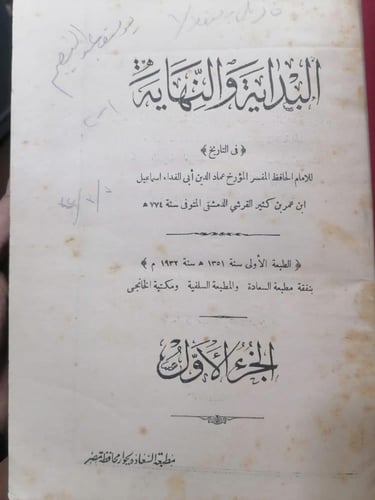 البداية والنهاية
﴿ فى التاريخ ﴾
للامام الحافظ المفسر المؤرخ عماد الدين أبى الفداء اسماعيل
ابن عمر بن كثير القرشى الدمشقى المتوفى سنة ٧٧٤ ه
﴿ الطبعة الأولى سنة ١٣٥١ ه سنة ١٩٣٢ م ﴾
بنفقة مطبعة السعادة والمطبعة السلفية ومكتبة الخانجى
الجزء الأول
مطبعة السعادة بجوار محافظة مصر